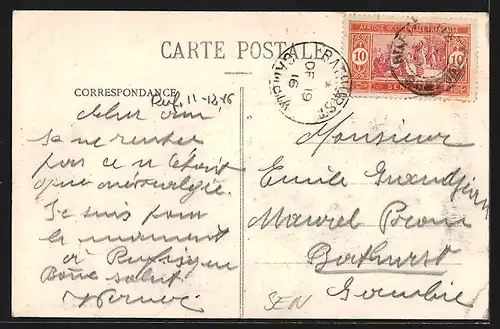 CARTE POSTALE
AFRIQUE OCCIDENTALE FRANÇAISE
10 10
SÉNÉGAL
BATHURST GAMBIA
DE 19
16
CORRESPONDANCE
Ruf, 11-12-16
Cher ami,
Je ne rentre
pas ce n'était
névralgie.
Je suis pour
le moment
à Rufisque
Bonne salut.
Monsieur
Emile
Maurel Prom
Bathurst
Gambie
SEN